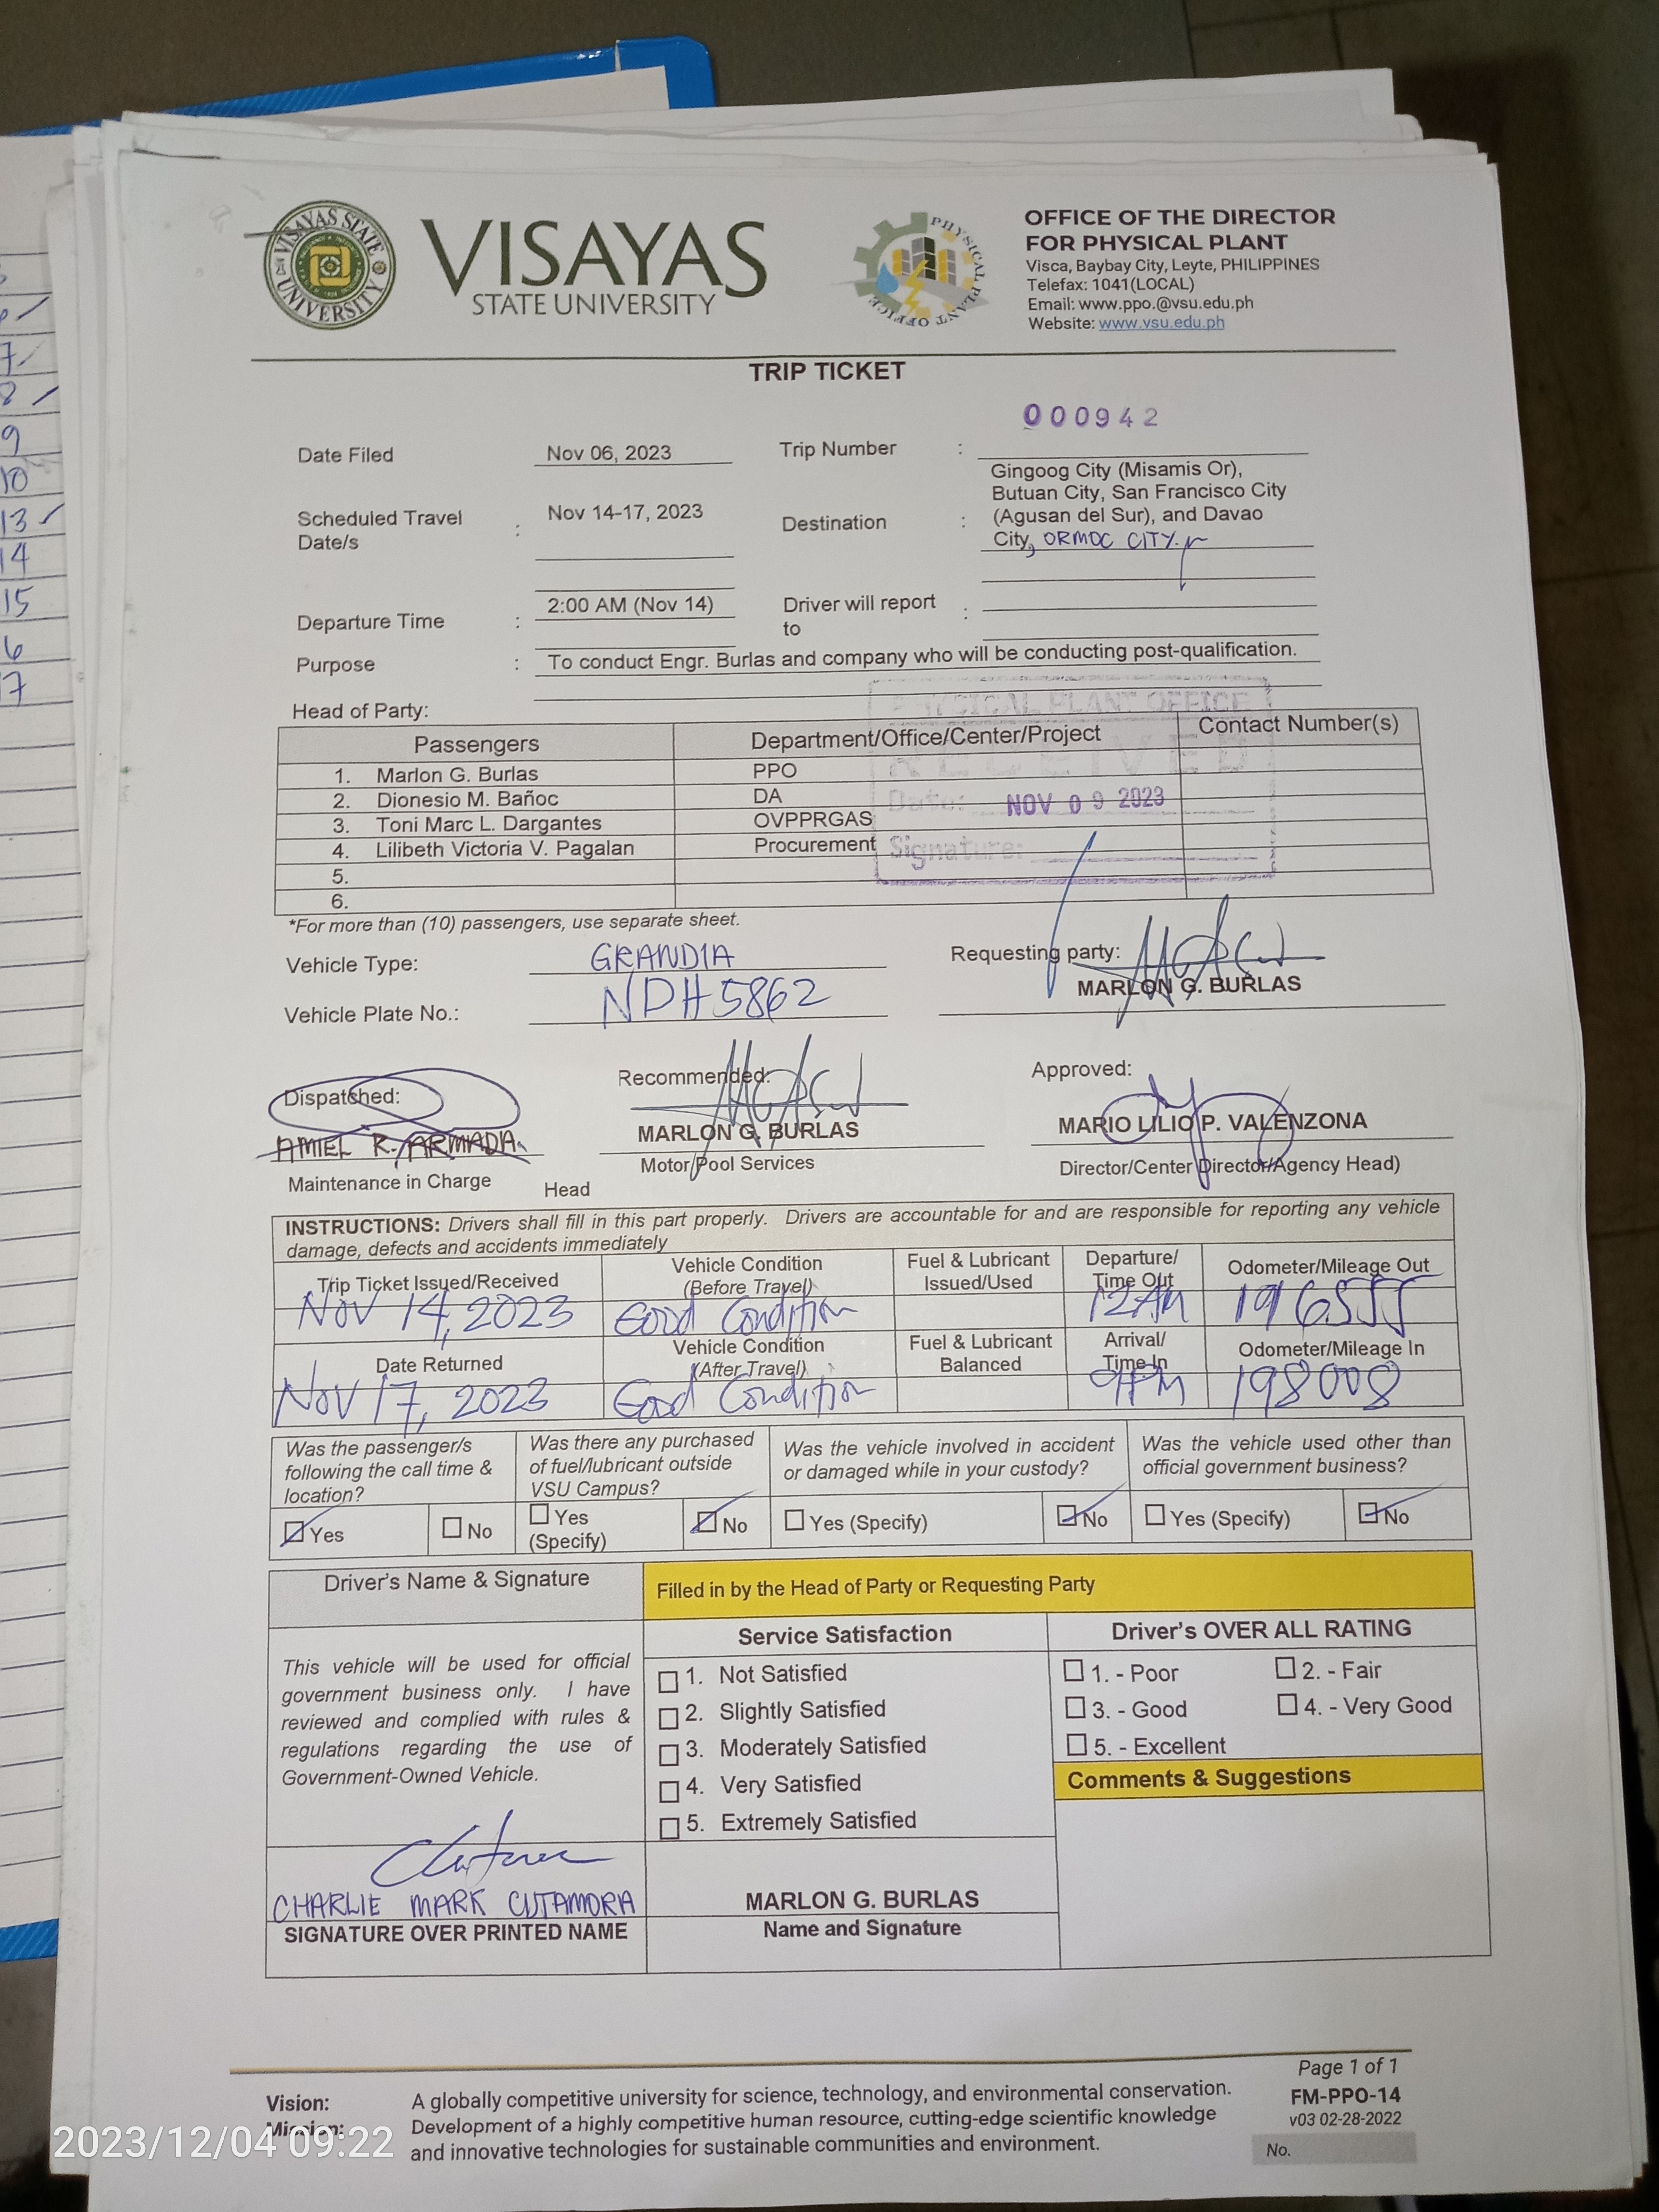 VISAYAS STATE UNIVERSITY
VISAYAS
STATE UNIVERSITY
PHYSICAL PLANT OFFICE
OFFICE OF THE DIRECTOR
FOR PHYSICAL PLANT
Visca, Baybay City, Leyte, PHILIPPINES
Telefax: 1041(LOCAL)
Email: www.ppo.@vsu.edu.ph
Website: www.vsu.edu.ph
TRIP TICKET
000942
Date Filed Nov 06, 2023 Trip Number :
Scheduled Travel Date/s : Nov 14-17, 2023
Destination : Gingoog City (Misamis Or),
Butuan City, San Francisco City
(Agusan del Sur), and Davao
City, ORMOC CITY.
Departure Time : 2:00 AM (Nov 14) Driver will report to :
Purpose : To conduct Engr. Burlas and company who will be conducting post-qualification.
Head of Party:
PHYSICAL PLANT OFFICE
RECEIVED
Date: NOV 09 2023
Signature:
Passengers Department/Office/Center/Project Contact Number(s)
1. Marlon G. Burlas PPO
2. Dionesio M. Bañoc DA
3. Toni Marc L. Dargantes OVPPRGAS
4. Lilibeth Victoria V. Pagalan Procurement
5.
6.
*For more than (10) passengers, use separate sheet.
Vehicle Type: GRANDIA Requesting party:
MARLON G. BURLAS
Vehicle Plate No.: NDH5862
Dispatched: Recommended: Approved:
AMIEL R. ARMADA MARLON G. BURLAS MARIO LILIO P. VALENZONA
Maintenance in Charge Head Motor/Pool Services Director/Center Director/Agency Head)
INSTRUCTIONS: Drivers shall fill in this part properly. Drivers are accountable for and are responsible for reporting any vehicle
damage, defects and accidents immediately
Trip Ticket Issued/Received Vehicle Condition (Before Travel) Fuel & Lubricant Issued/Used Departure/ Time Out Odometer/Mileage Out
Nov 14, 2023 Good Condition 12AM 196555
Date Returned Vehicle Condition (After Travel) Fuel & Lubricant Balanced Arrival/ Time In Odometer/Mileage In
Nov 17, 2023 Good Condition 9PM 198008
Was the passenger/s following the call time & location?
Was there any purchased of fuel/lubricant outside VSU Campus?
Was the vehicle involved in accident or damaged while in your custody?
Was the vehicle used other than official government business?
Yes No Yes (Specify) No Yes (Specify) No Yes (Specify) No
Driver's Name & Signature
Filled in by the Head of Party or Requesting Party
This vehicle will be used for official
government business only. I have
reviewed and complied with rules &
regulations regarding the use of
Government-Owned Vehicle.
Service Satisfaction
1. Not Satisfied
2. Slightly Satisfied
3. Moderately Satisfied
4. Very Satisfied
5. Extremely Satisfied
Driver's OVER ALL RATING
1. - Poor 2. - Fair
3. - Good 4. - Very Good
5. - Excellent
Comments & Suggestions
CHARLIE MARK CUTAMORA
SIGNATURE OVER PRINTED NAME
MARLON G. BURLAS
Name and Signature
Page 1 of 1
FM-PPO-14
v03 02-28-2022
No.
Vision: A globally competitive university for science, technology, and environmental conservation.
Mission: Development of a highly competitive human resource, cutting-edge scientific knowledge
and innovative technologies for sustainable communities and environment.
2023/12/04 09:22
9
10
13
14
15